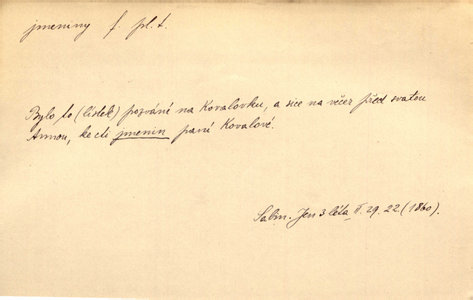 jmeniny f. pl. t.
Bylo to (lístek) pozváné na Kovalovku, a sice na večer před svatou
Annou, ke cti jmenin paní Kovalové.
Sabin. Jen 3 léta II. 29. 22. (1860).